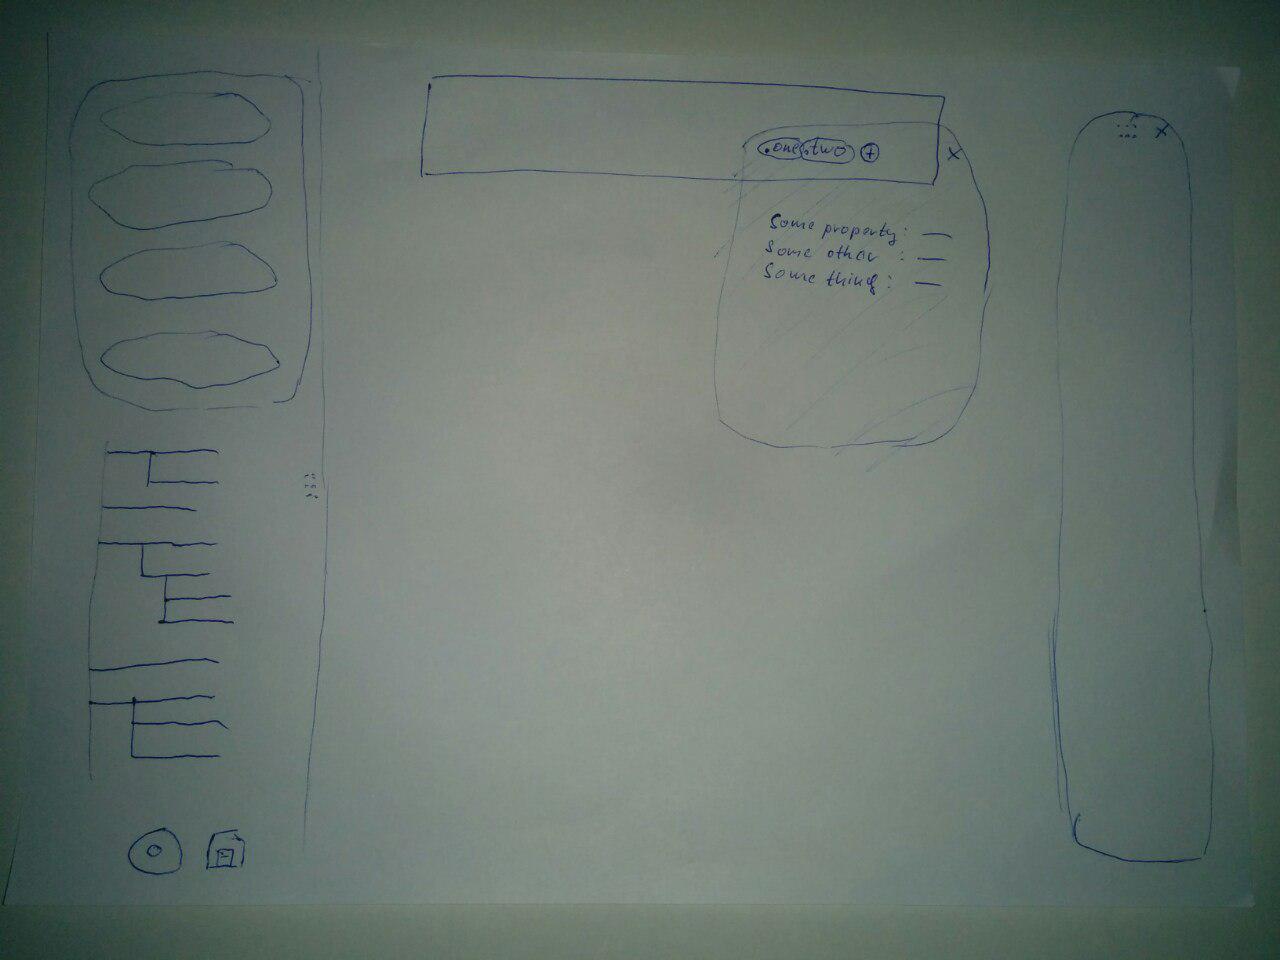 .one .two +
x
x
Some property: __
Some other : __
Some thing: __